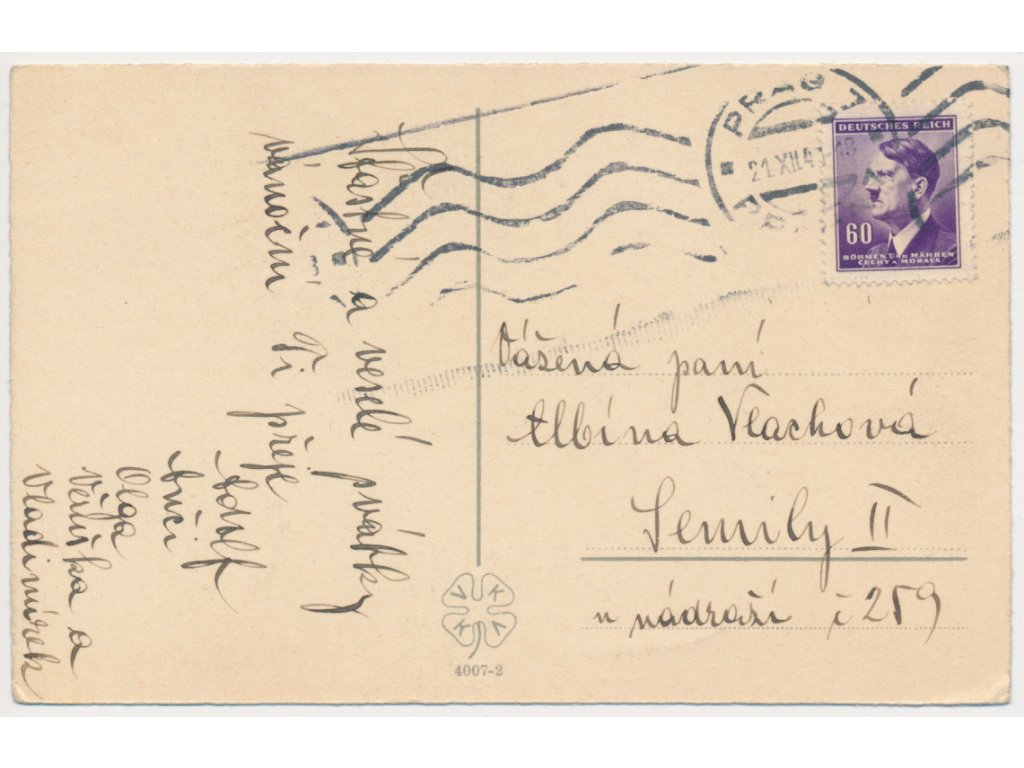 Šťastné a veselé svátky
vánoční Ti přeje
Adolf
Anči
Olga
Věruška a
Vladimírek
PRAG
21.XII.4
DEUTSCHES REICH
60
BÖHMEN UND MÄHREN
ČECHY A MORAVA
Vážená paní
Albína Vlachová
Semily II
u nádraží č 259
V K V K
4007-2